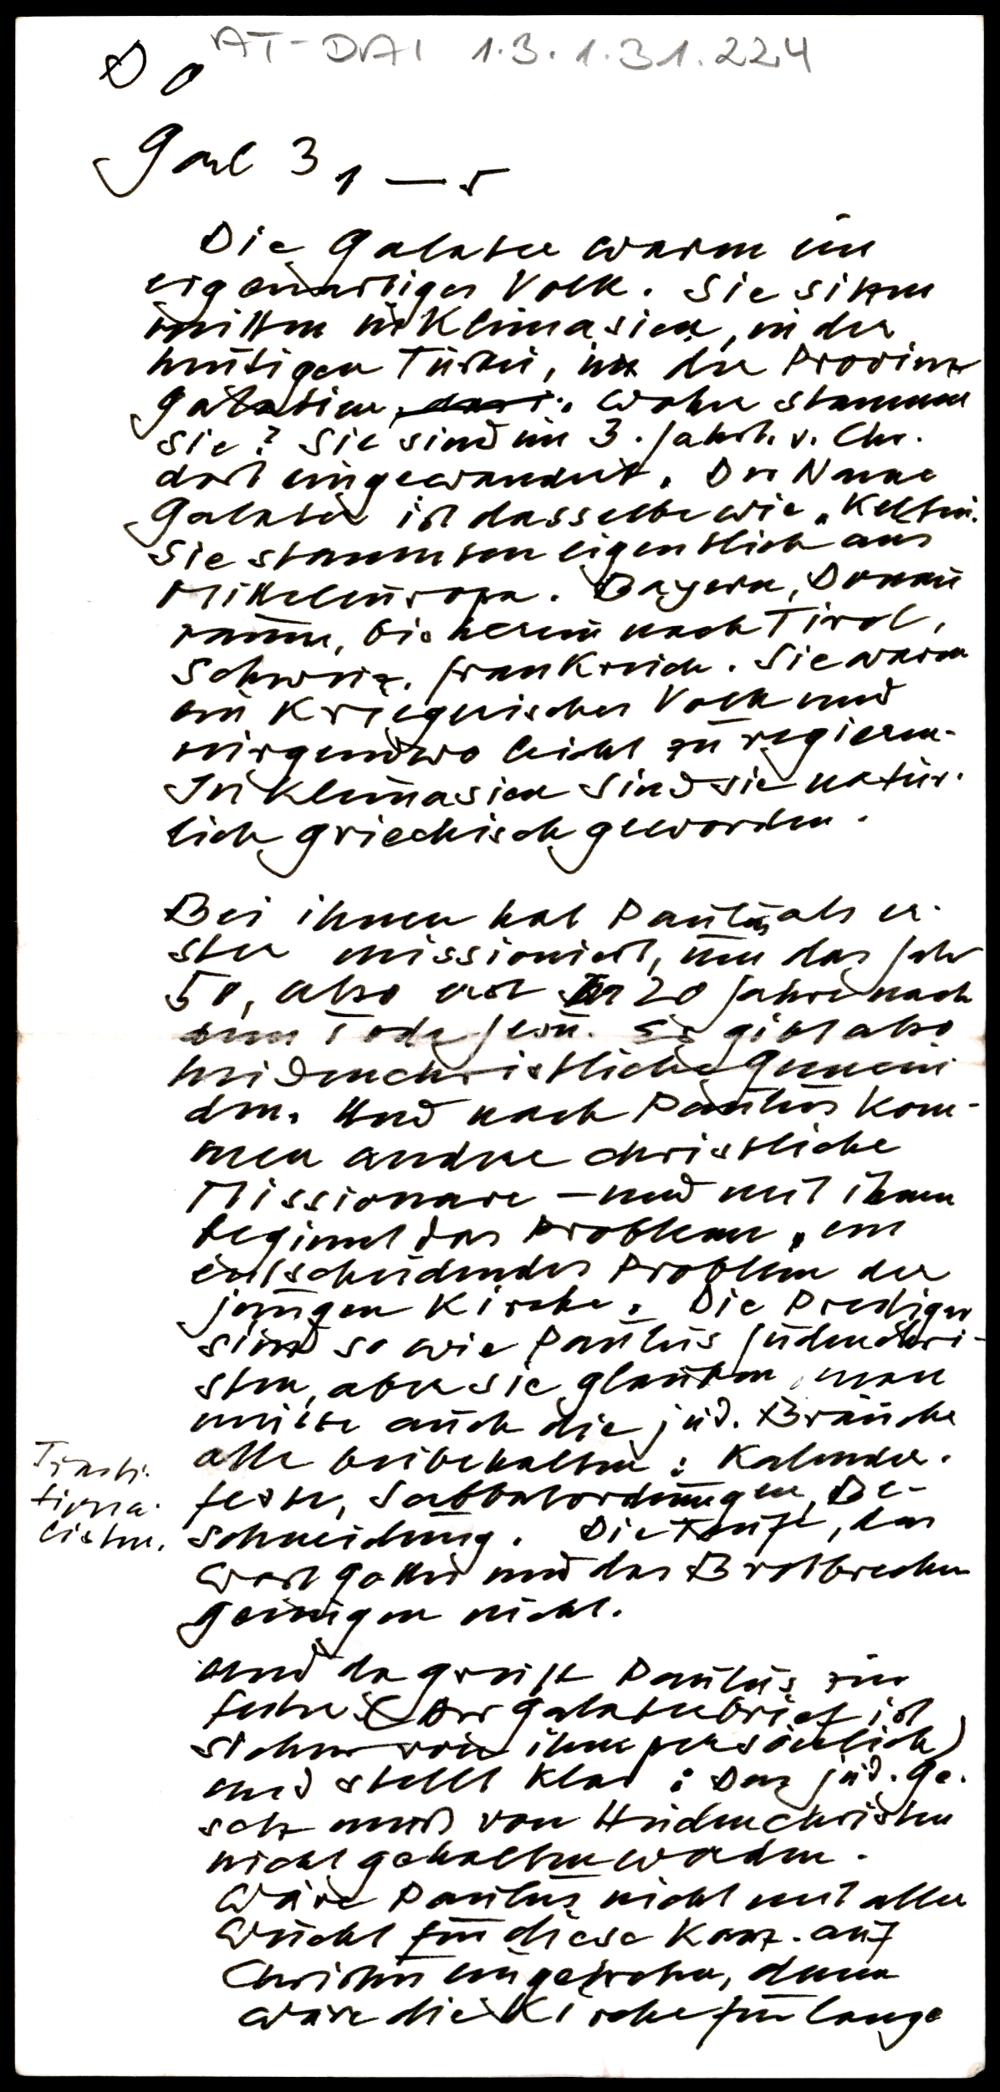 AT-DAI 1.3.1.31.224
Do
Gal 3, 1 — 5
Die Galater waren ein
eigenartiges Volk. Sie sitzen
mitten in Kleinasien, in der
heutigen Türkei, in der Provinz
Galatien. Woher stammen
sie? Sie sind im 3. Jahrh. v. Chr.
dort eingewandert. Der Name
Galater ist dasselbe wie „Kelten.
Sie stammten eigentlich aus
Mitteleuropa. Bayern, Donau
raum, bis herein nach Tirol,
Schweiz, Frankreich. Sie waren
ein kriegerisches Volk und
nirgendwo leicht zu regieren.
In Kleinasien sind sie natür-
lich griechisch geworden.
Bei ihnen hat Paulus als er-
ster missioniert, um das Jahr
50, also erst 20 Jahre nach
dem Tode Jesu. Es gibt also
heidenchristliche Gemein
den. Und nach Paulus kom-
men andere christliche
Missionare – und mit ihnen
beginnt das Problem, ein
entscheidendes Problem der
jungen Kirche. Die Prediger
sind so wie Paulus Judenchri-
sten, aber sie glauben, man
müsse auch die jüd. Bräuche
alle beibehalten: Kalender-
feste, Sabbatordnungen, Be-
schneidung. Die Taufe, das
Wort Gottes und das Brotbrechen
genügen nicht.
Traditi-
tiona-
listen.
Und da greift Paulus zur
Feder (Der Galaterbrief ist
sicher von ihm persönlich)
und stellt klar: Das jüd. Ge-
setz muß von Heidenchristen
nicht gehalten werden.
Wäre Paulus nicht mit aller
Wucht für diese Konz. auf
Christus eingetreten, dann
wäre die Kirche für lange